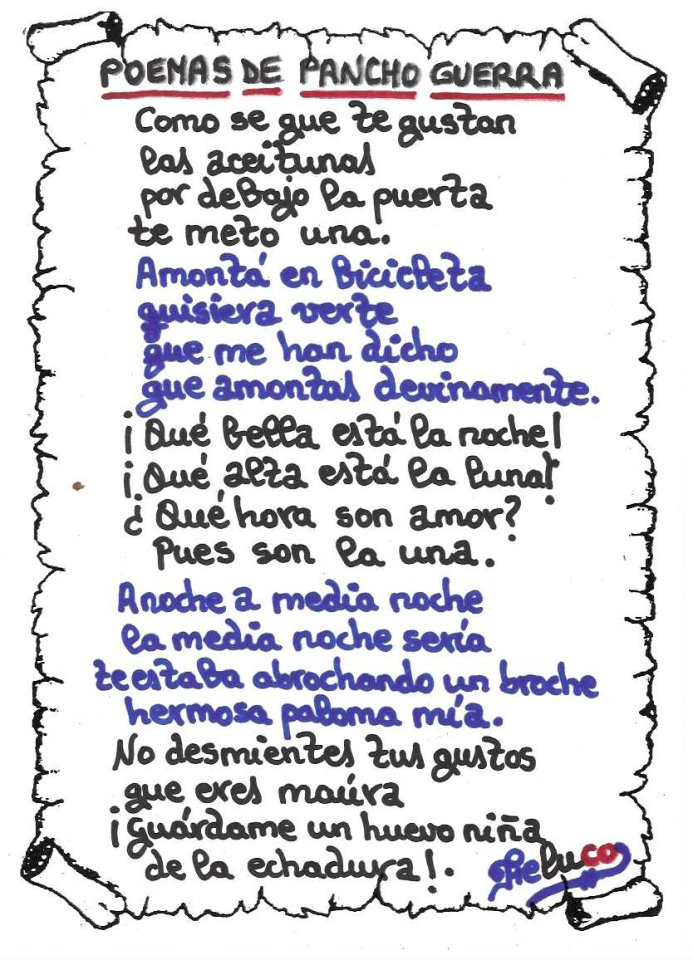 POEMAS DE PANCHO GUERRA
Como se que te gustan
las aceitunas
por debajo la puerta
te meto una.
Amontá en bicicleta
quisiera verte
que me han dicho
que amontas devinamente.
¡Qué bella está la noche!
¡Qué alta está la luna!
¿Qué hora son amor?
Pues son la una.
Anoche a media noche
la media noche sería
te estaba abrochando un broche
hermosa paloma mía.
No desmientes tus gustos
que eres maúra
¡Guárdame un huevo niña
de la echadura!.
Pieluco